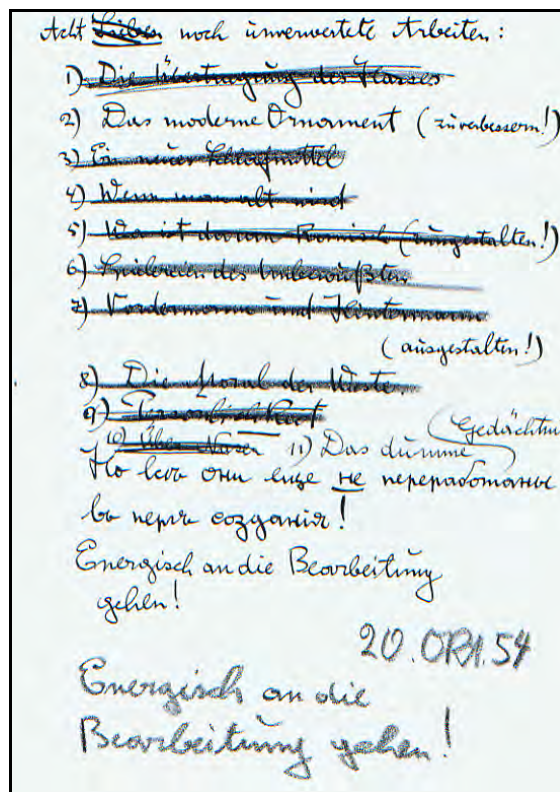 Acht Sieben noch unverwertete Arbeiten:
1) Die Übertragung des Hasses
2) Das moderne Ornament (zu verbessern!)
3) Ein neuer Schlafmittel
4) Wenn man alt wird
5) Was ist daran Komisch (umgestalten!)
6) Spielereien des Unbewußten
7) Vordermann und Hintermann
(ausgestalten!)
8) Die Moral der Weste.
9)
10) Über Nasen 11) Das dumme Gedächtnis
Но они еще не переработаны
созданія!
Energisch an die Bearbeitung
gehen!
20. 54
Energisch an die
Bearbeitung gehen!